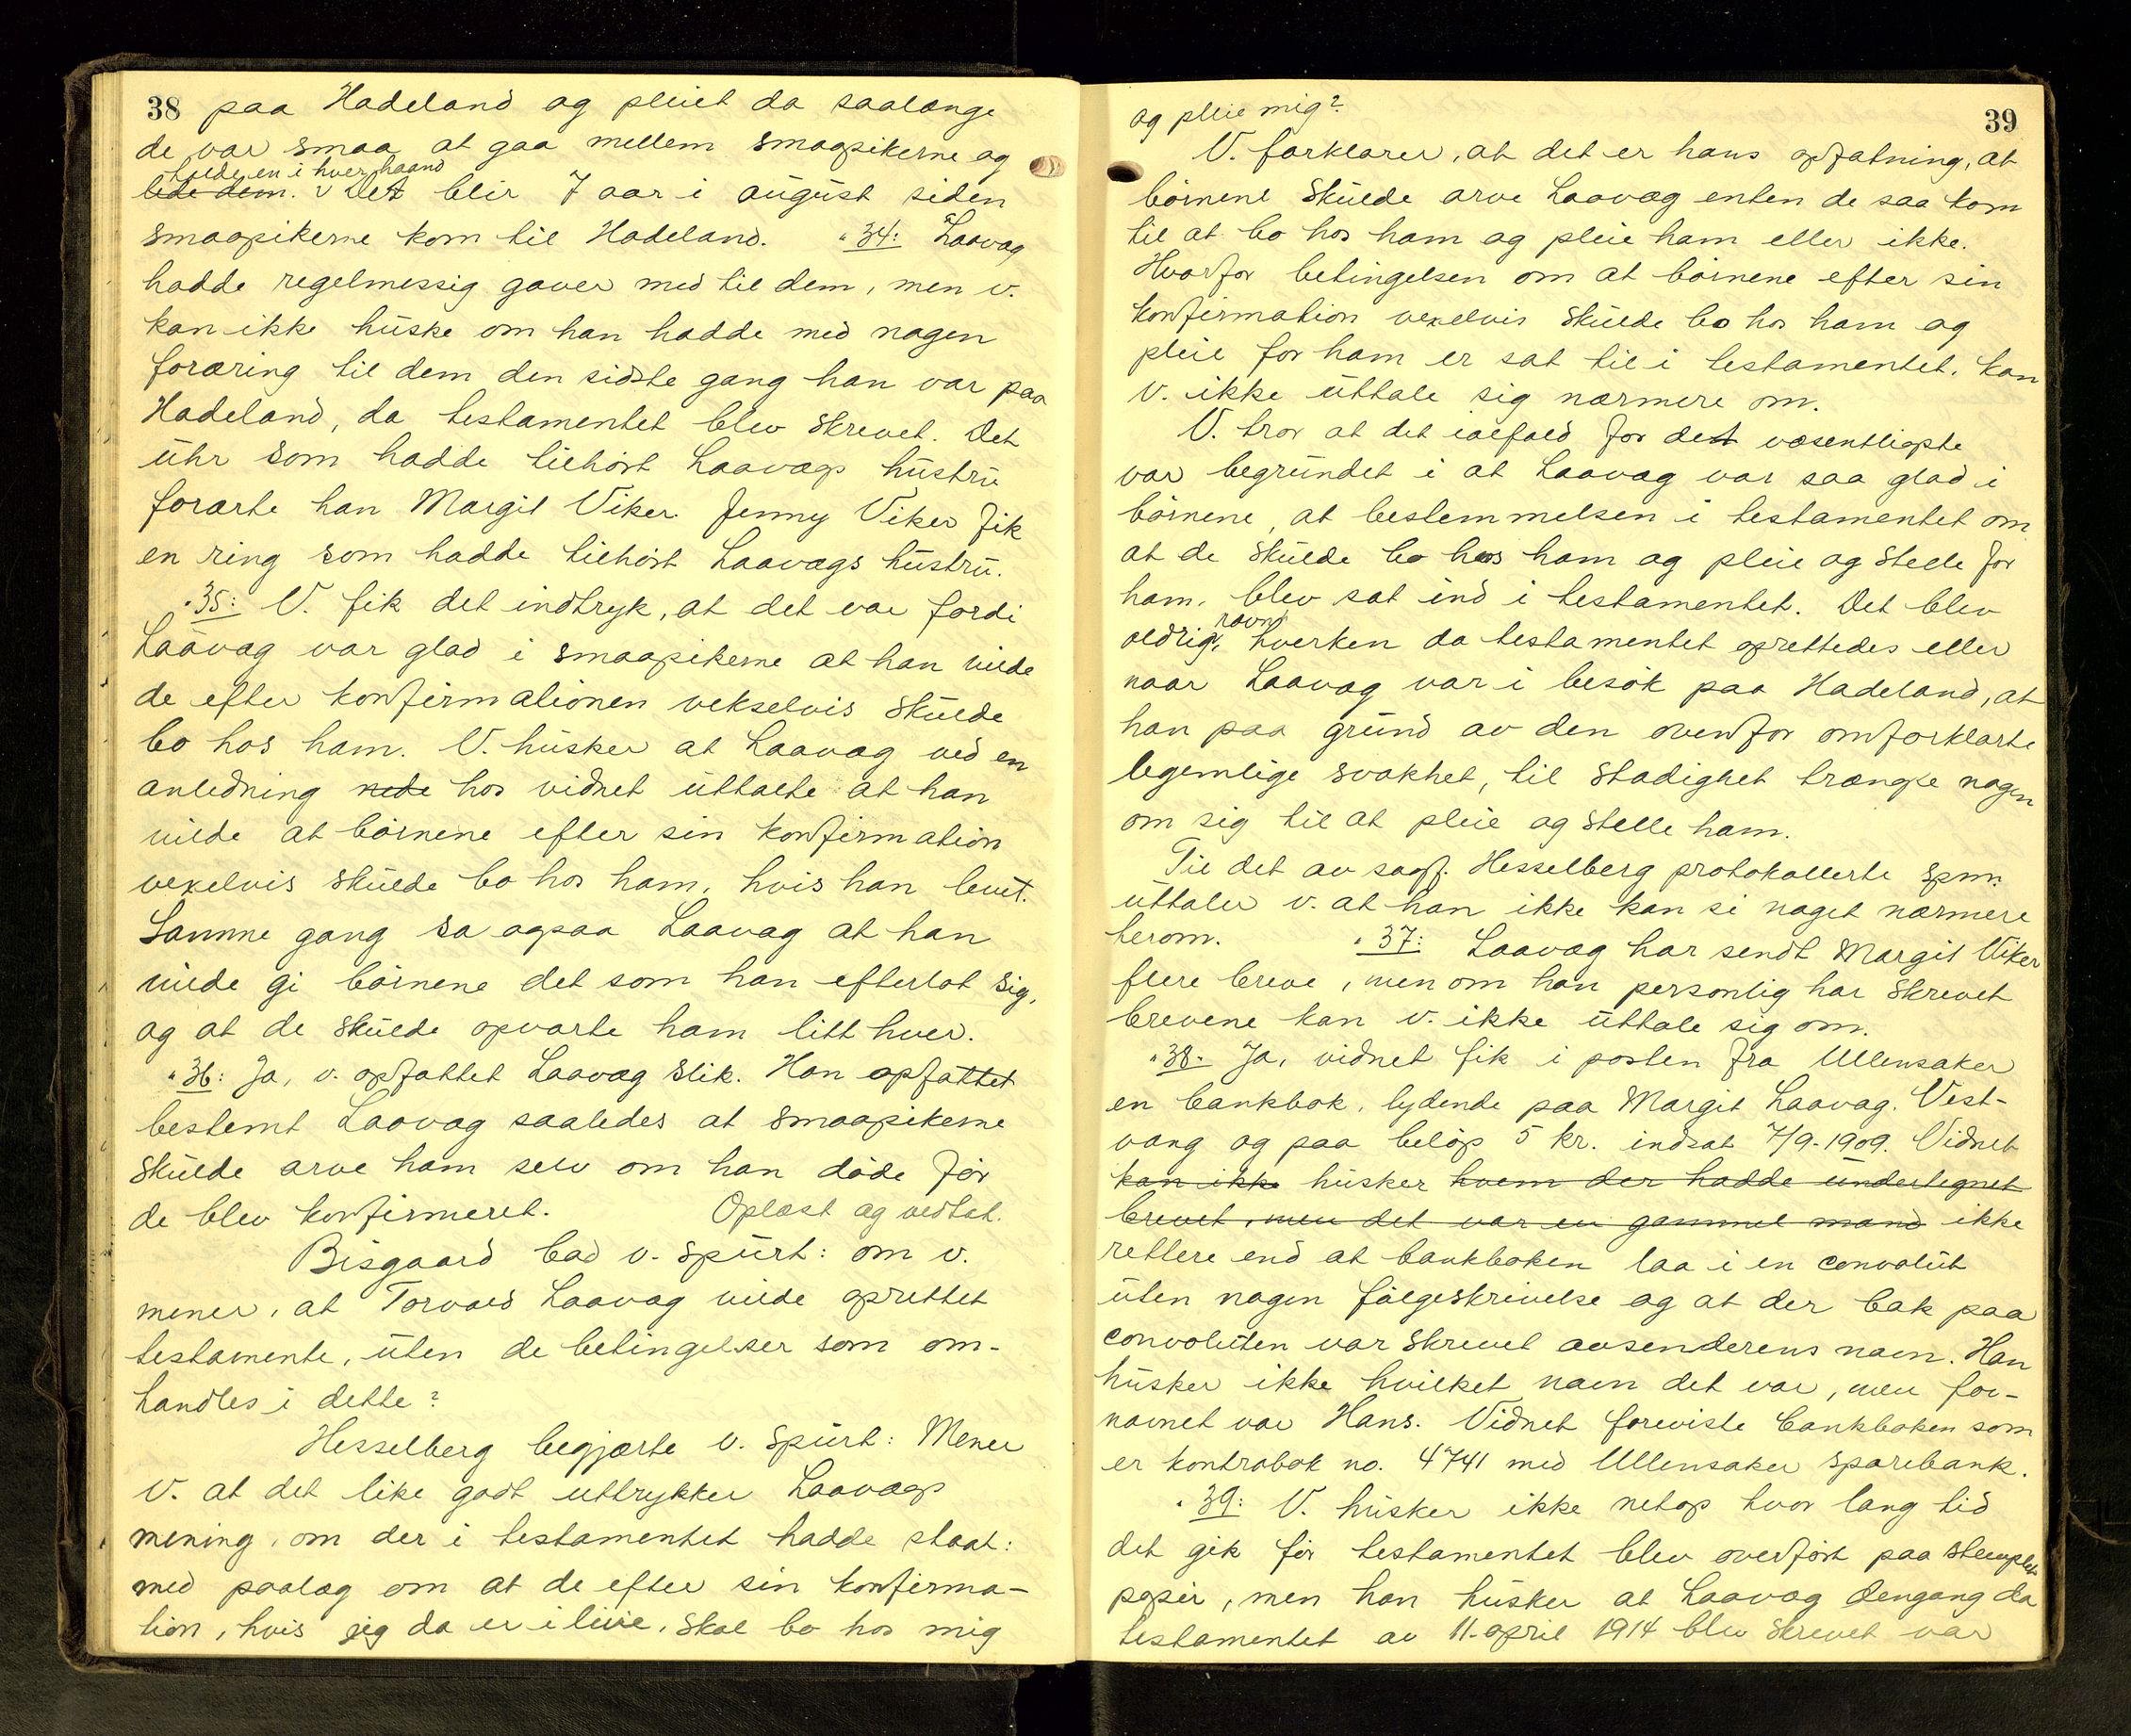 38 paa Hadeland og pleiet da saalænge
de var smaa at gaa mellem smaapikerne og
holde en i hver haand
lede dem. v Det blir 7 aar i august siden
smaapikerne kom til Hadeland. "34: Laavag
hadde regelmessig gaver med til dem, men v.
kan ikke huske om han hadde med nogen
foræring til dem den sidste gang han var paa
Hadeland, da testamentet blev skrevet. Det
uhr som hadde tilhørt Laavags hustru
forærte han Margit Viker. Jenny Viker fik
en ring som hadde tilhørt Laavags hustru.
"35: V. fik det indtryk, at det var fordi
Laavag var glad i smaapikerne at han vilde
de efter konfirmationen vekselvis skulde
bo hos ham. V. husker at Laavag ved en
anledning nede hos vidnet uttalte at han
vilde at børnene efter sin konfirmation
vexelvis skulde bo hos ham, hvis han levet.
Samme gang sa ogsaa Laavag at han
vilde gi børnene det som han efterlot sig,
og at de skulde opvarte ham litt hver.
"36: Ja, v. opfattet Laavag slik. Han opfattet
bestemt Laavag saaledes at smaapikerne
skulde arve ham selv om han døde før
de blev konfirmeret. Oplæst og vedtat.
Bisgaard bad v. spurt: om v.
mener, at Torvald Laavag vilde oprettet
testamente, uten de betingelser som om-
handles i dette?
Hesselberg begjærte v. spurt: Mener
v. at det like godt uttrykker Laavags
mening, om der i testamentet hadde staat:
med paalæg om at de efter sin konfirma-
tion, hvis jeg da er i live, skal bo hos mig
39
og pleie mig?
V. forklarer, at det er hans opfatning, at
børnene skulde arve Laavag enten de saa kom
til at bo hos ham og pleie ham eller ikke.
Hvorfor betingelsen om at børnene efter sin
konfirmation vexelvis skulde bo hos ham og
pleie for ham er sat til i testamentet, kan
v. ikke uttale sig nærmere om.
V. tror at det ialfald for det væsentligste
var begrundet i at Laavag var saa glad i
børnene, at bestemmelsen i testamentet om
at de skulde bo hos ham og pleie og stelle for
ham, blev sat ind i testamentet. Det blev
nævnt
aldrig, hverken da testamentet oprettedes eller
naar Laavag var i besøk paa Hadeland, at
han paa grund av den ovenfor omforklarte
legemlige svakhet, til stadighet trængte nogen
om sig til at pleie og stelle ham.
Til det av sagf. Hesselberg protokollerte spm.
uttaler v. at han ikke kan si noget nærmere
herom. "37: Laavag har sendt Margit Viker
flere breve, men om han personlig har skrevet
brevene kan v. ikke uttale sig om.
"38. Ja, vidnet fik i posten fra Ullensaker
en bankbok, lydende paa Margit Laavag. Vest-
vang og paa beløp 5 kr. indsat 7/9-1909. Vidnet
kan ikke husker hvem der hadde undertegnet
brevet, men det var en gammel mand ikke
rettere end at bankboken laa i en convolut
uten nogen følgeskrivelse og at der bak paa
convoluten var skrevet avsenderens navn. Han
husker ikke hvilket navn det var, men for-
navnet var Hans. Vidnet foreviste bankboken som
er kontrabok no. 4741 med Ullensaker sparebank.
"39: V. husker ikke netop hvor lang tid
det gik før testamentet blev overført paa stemplet
papir, men han husker at Laavag dengang da
testamentet av 11. april 1914 blev skrevet var